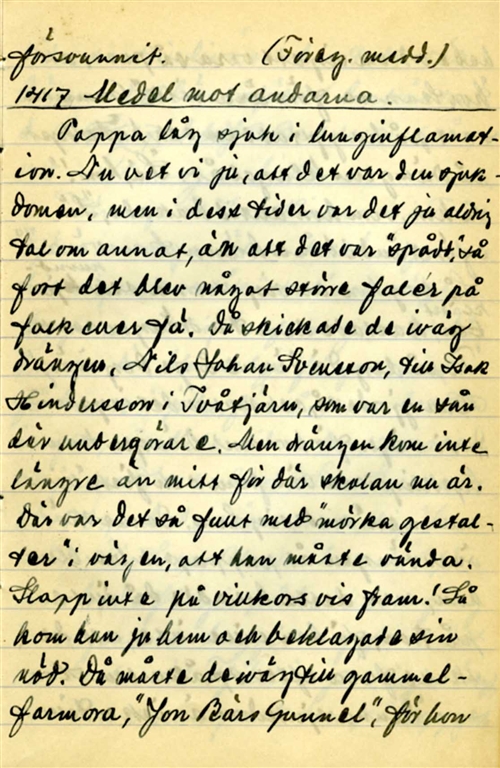 försvunnit. (Föreg. medd.)
1417 Medel mot andarna.
Pappa låg sjuk i lunginflamat-
ion. Nu vet vi ju, att det var den sjuk-
domen, men i dess tider var det ju aldrig
tal om annat, än att det var "spådt", så
fort det blev något större falér på
folk eller fä. Då skickade de iväg
drängen, Nils Johan Svensson, till Isak
Hindersson i Tvåtjärn, som var en sån
där undergörare. Men drängen kom inte
längre än mitt för där skolan nu är.
Där var det så fullt med "mörka gestal-
ter" i vägen, att han måste vända.
Slapp inte på villkors vis fram! Så
kom han ju hem och beklagade sin
nöd. Då måste de iväg till gammel-
farmora, "Jon Bärs Gunnel", för hon